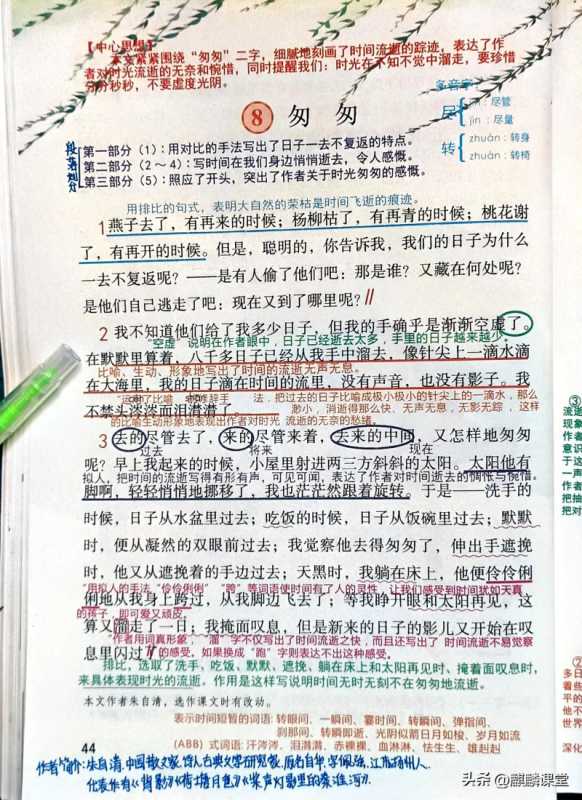 【中心思想】
本文紧紧围绕“匆匆”二字，细腻地刻画了时间流逝的踪迹，表达了作
者对时光流逝的无奈和惋惜，同时提醒我们：时光在不知不觉中溜走，要珍惜
分分秒秒，不要虚度光阴。
多音字
8 匆匆
尽 jǐn：尽管
jìn：尽量
转 zhuǎn：转身
zhuàn：转椅
段落划分
第一部分（1）：用对比的手法写出了日子一去不复返的特点。
第二部分（2～4）：写时间在我们身边悄悄逝去，令人感慨。
第三部分（5）：照应了开头，突出了作者关于时光匆匆的感慨。
用排比的句式，表明大自然的荣枯是时间飞逝的痕迹。
1 燕子去了，有再来的时候；杨柳枯了，有再青的时候；桃花谢
了，有再开的时候。但是，聪明的，你告诉我，我们的日子为什么
一去不复返呢？——是有人偷了他们吧：那是谁？又藏在何处呢？
是他们自己逃走了吧：现在又到了哪里呢？//
2 我不知道他们给了我多少日子，但我的手确乎是渐渐空虚了。
“空虚”说明在作者眼中，日子已经逝去太多，手里的日子越来越少。
在默默里算着，八千多日子已经从我手中溜去，像针尖上一滴水滴
比喻、生动、形象地写出了时间的流逝无声无息。
在大海里，我的日子滴在时间的流里，没有声音，也没有影子。我
“运用了比喻 修辞手法，把过去的日子比喻成极小极小的针尖上的一滴水，那么
不禁头涔涔而泪潸潸了。
渺小，消逝得那么快、无声无息，无影无踪，这样
的比喻生动形象地表现出作者对时光 流逝的无奈的愁绪。
3 去的尽管去了，来的尽管来着，去来的中间，又怎样地匆匆
过去 将来 现在
呢？早上我起来的时候，小屋里射进两三方斜斜的太阳。太阳他有
拟人，把时间的流逝写得有形有声，可见可闻，表达了作者对时间逝去的惆怅与惋惜。
脚啊，轻轻悄悄地挪移了，我也茫茫然跟着旋转。于是——洗手的
时候，日子从水盆里过去；吃饭的时候，日子从饭碗里过去；默默
时，便从凝然的双眼前过去；我觉察他去得匆匆了，伸出手遮挽
时，他又从遮挽着的手边过去；天黑时，我躺在床上，他便伶伶俐
“用拟人的手法，“伶伶俐俐”“跨”等词语使时间有了人的灵性，让我们感受到时间犹如天真
俐地从我身上跨过，从我脚边飞去了；等我睁开眼和太阳再见，这
的孩子，即可爱又顽皮。
算又溜走了一日；我掩面叹息，但是新来的日子的影儿又开始在叹
“作者用词真形象，“溜”字不仅写出了时间流逝之快，而且还写出了时间流逝不易觉察
息里闪过了//的感受。如果换成“跑”字则表达不出这种感受。
排比，选取了洗手、吃饭、默默、遮挽、躺在床上和太阳再见时、掩着面叹息时，
来具体表现时光的流逝。作用是这样写说明时间无时无刻不在匆匆地流逝。
本文作者朱自清，选作课文时有改动。
表示时间短暂的词语：转眼间、一瞬间、霎时间、转瞬间、弹指间、
刹那间、转瞬即逝、光阴似箭日月如梭、岁月如流
44
(ABB) 式词语：汗涔涔、泪潸潸、赤裸裸、血淋淋、怯生生、雄赳赳
作者简介：朱自清，中国散文家、诗人古典文学研究家，原名自华，字佩弦，江苏扬州人。
代表作有《背影》《荷塘月色》《桨声灯影里的秦淮河》
③
流逝
现象
作者
意识
于这
一声
作者
把抽
把对
②
多日
看些
平的
他不
世界
深化
头条 @麒麟课堂